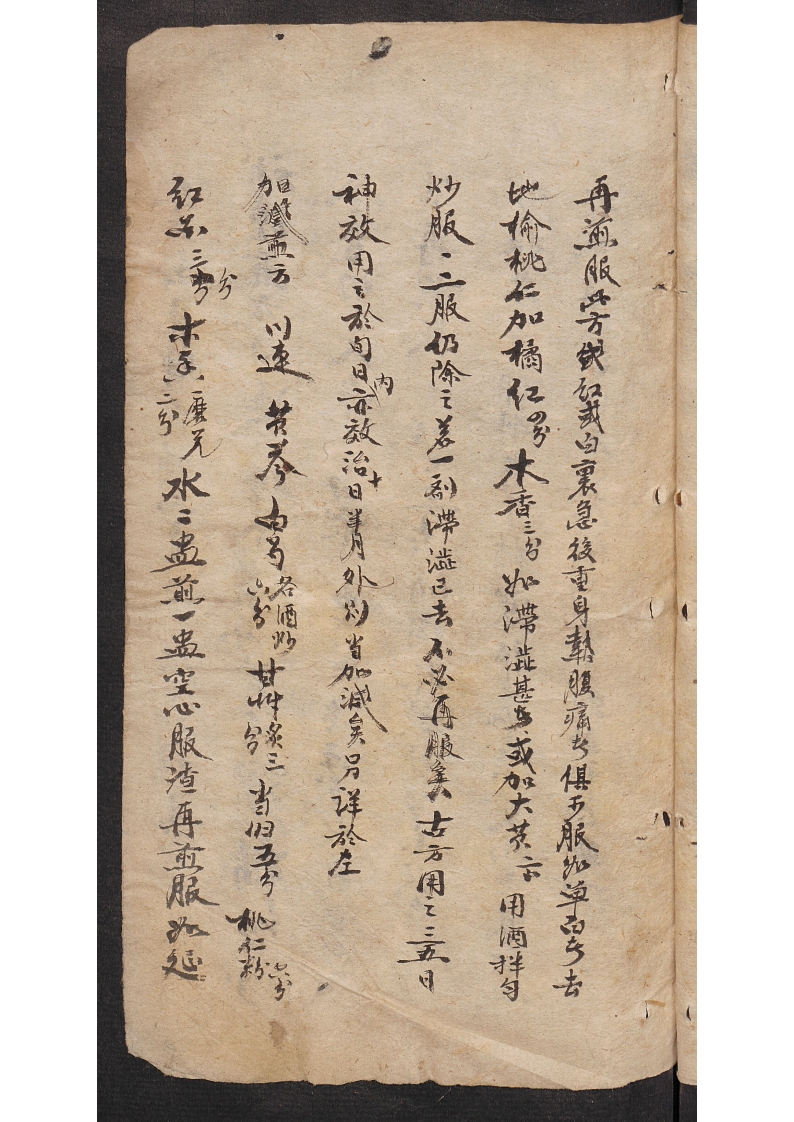 再煎服此方或紅或白裏急後重身熱腹痛者俱可服如單白者去
地榆桃仁加橘紅四分木香三分如滯澁甚者或加大黃 用酒拌勻
炒服一二服仍除之若一劑滯澁已去不必再服矣古方用之三五日
神效用之於旬日內亦效治十日半月外則當加減矣另詳於左
加減煎方 川連 苓芩 白芍各酒炒六分甘艸炙三分當归五分桃仁粉六分
紅花三分木香二分磨兌水二盅煎一盅空心服渣再煎服如延